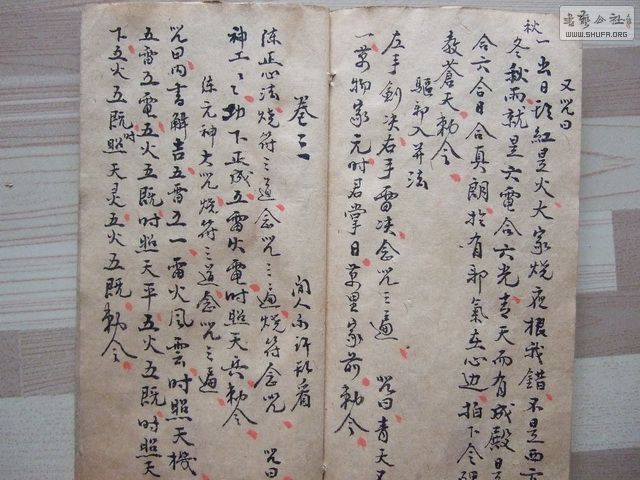 又咒曰
秋一出日頭紅是火大家燒夜根我錯不是西方
冬秋雨就是六電合六光青天而有成殿日
合六合日合真朗於有邪氣在心边拍下令
教蒼天勅令
驅邪入井法
左手劍决右手雷决念咒三遍 咒曰青天又
一萬物家元時君掌日萬里家前勅令
卷三 閒人不許乱看
陈正心法燒符三道念咒三遍燒符念咒 咒曰
神工三功下正成五雷火電時照天兵勅令
陈元神大咒燒符三道念咒三遍
咒曰內書解吉五雷五一雷火風雲時照天機
五雷五電五火五既時照天平五火五既時照天
下五火五既時照天灵五火五既勅令
書藝公社
WWW.SHUFA.ORG